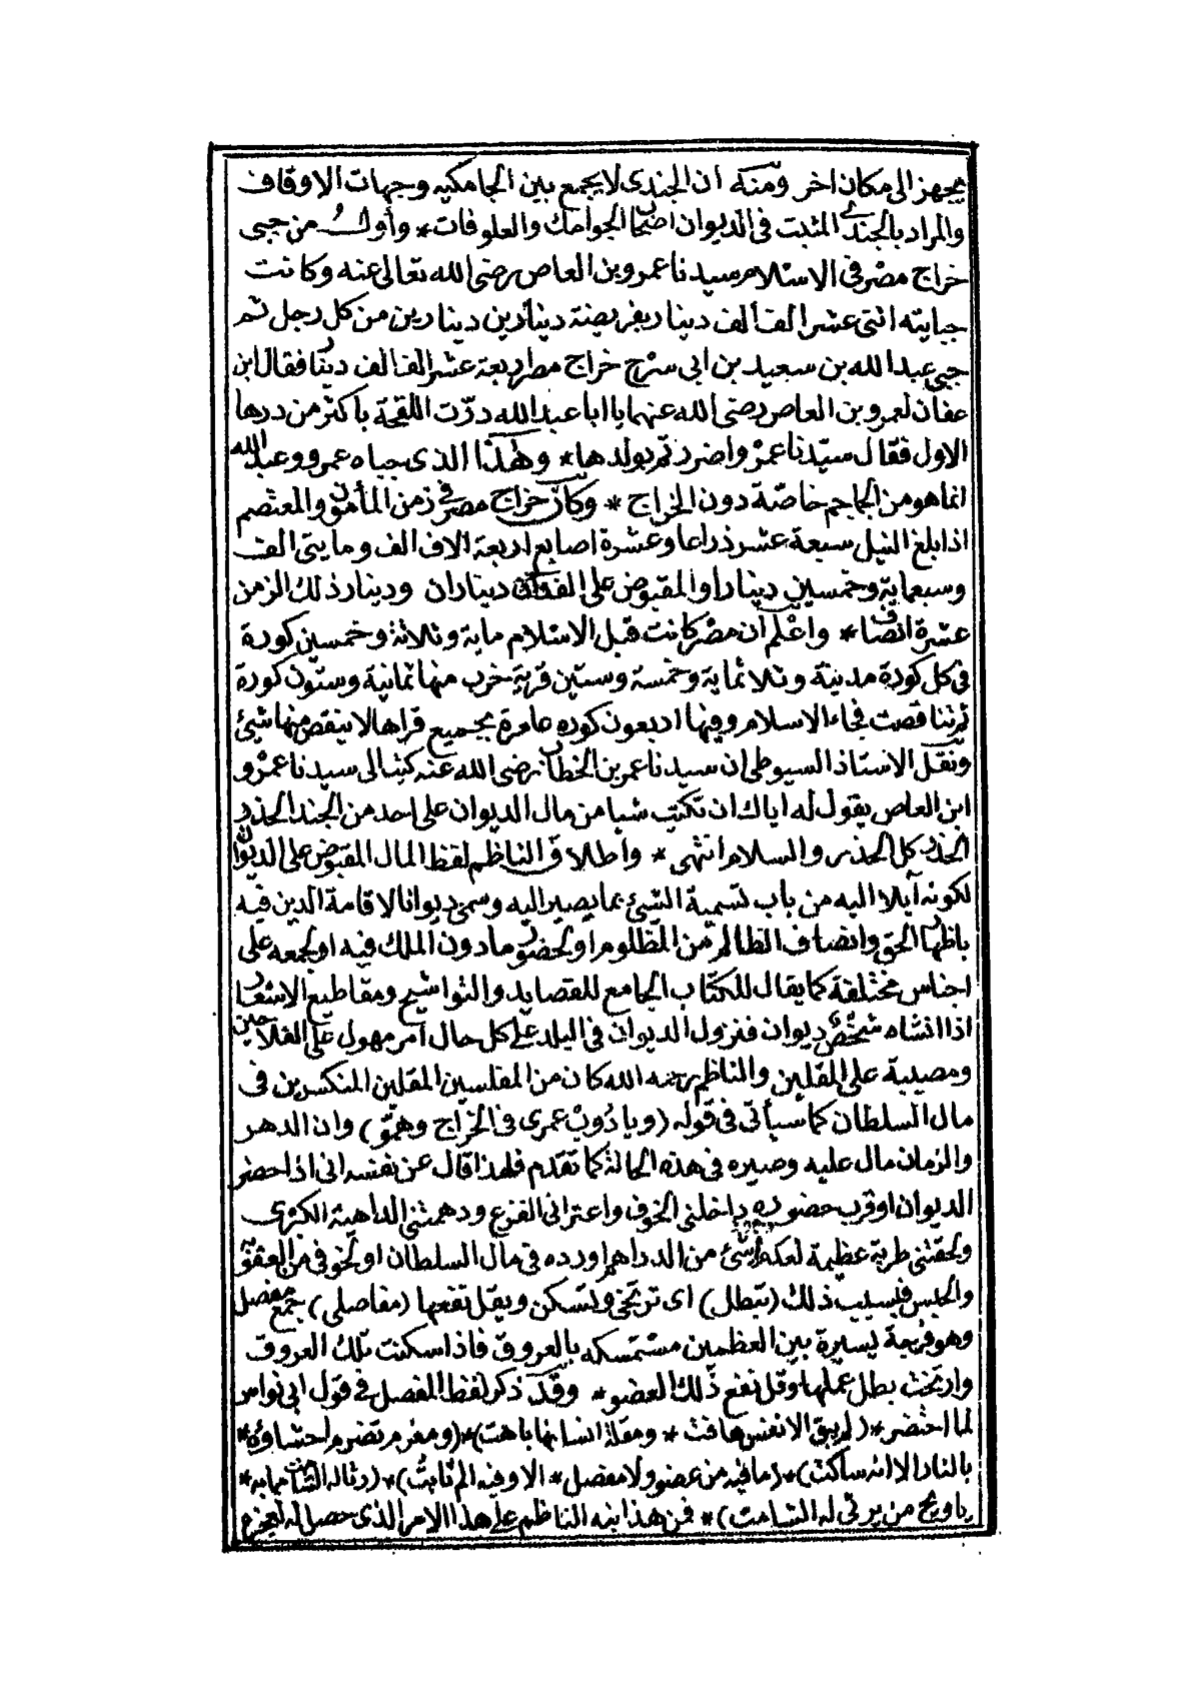 يجهز الى مكان اخر ومنه ان الجندى لا يجمع بين الجامكيه وجهات الاوقاف
والمراد بالجندى المثبت فى الديوان اصحاب الجوامك والعلوفات * وأول من جبى
خراج مصر فى الاسلام سيدنا عمرو بن العاص رضى الله تعالى عنه وكانت
جبايته اثنى عشر الف ألف دينار بفريضة دينارين دينارين من كل رجل ثم
جبى عبد الله بن سعيد بن ابى سرح خراج مصر اربعة عشر الف الف دينار فقال ابن
عفان لعمرو بن العاص رضى الله عنهما يا ابا عبد الله درّت اللقحة باكثر من درها
الاول فقال سيّدنا عمرو اضررتم بولدها * وهذا الذى جباه عمرو وعبد الله
انما هو من الجماجم خاصّة دون الخراج * وكان خراج مصر فى زمن المأمون والمعتصم
اذا بلغ النيل سبعة عشر ذراعا وعشرة اصابع اربعة الاف الف ومايتى الف
وسبعماية وخمسين دينارا والمقبوض على الفدان ديناران ودينار ذلك الزمن
عشرة انصاف * واعلم أن مصر كانت قبل الاسلام ماية وثلاثة وخمسين كورة
فى كل كورة مدينة وثلاثماية وخمسة وستين قرية خرب منها ثمانية وستون كورة
ثم تناقصت فجاء الاسلام وفيها اربعون كوره عامرة بجميع قراها لا ينقص منها شيئ
ونقل الاستاذ السيوطى ان سيدنا عمر بن الخطاب رضى الله عنه كتب الى سيدنا عمرو
ابن العاص يقول له اياك ان تكتب شيا من مال الديوان على احد من الجند الحذر
الحذر كل الحذر والسلام انتهى * وأطلاق الناظم لفظ المال المقبوض على الديوان
لكونه آيلا اليه من باب تسمية الشيئ بما يصير اليه وسمى ديوانا لاقامة الدين فيه
باظهار الحق وانصاف الظالم من المظلوم او لحضور مادون الملك فيه او لجمعه على
اجناس مختلفة كما يقال للكتاب الجامع للقصايد والتواشيح ومقاطيع الاشعار
اذا انشاه شخص ديوان فنزول الديوان فى البلد على كل حال أمر مهول على الفلاحين
ومصيبة على المقلين والناظم رحمه الله كان من المفلسين المقلين المنكسرين فى
مال السلطان كما سيأتى فى قوله (ويا دوب عمرى فى الخراج وهمّو) وان الدهر
والزمان مال عليه وصيره فى هذه الحالة كما تقدم فلهذا قال عن نفسه انى اذا حضر
الديوان او قرب حضوره داخلنى الخوف واعترانى الفزع ودهمتنى الداهية الكبرى
ولحقتنى طربة عظيمة لعكه شئ من الدراهم اورده فى مال السلطان او لخوفى من العقوبة
والحبس فبسبب ذلك (تبطل) اى ترتخى وتسكن ويقل نفعها (مفاصلى) جمع مفصل
وهو فرجة يسيرة بين العظمين مستمسكه بالعروق فاذا سكنت تلك العروق
وارتخت بطل عملها وقل نفع ذلك العضو * وقد ذكر لفظ المفصل فى قول ابى نواس
لما احتضر * (لم يبق الا نفس هافت * ومقلة انسانها باهت) * (ومغرم تضرم احشاؤه *
بالنار الا انه ساكت) * (ما فيه من عضو ولا مفصل * الا وفيه الم ثابت) * (رثا له الشامت مما به *
يا ويح من يرثى له الشامت) * فمن هذا نبه الناظم على هذا الامر الذى حصل له ليخرج